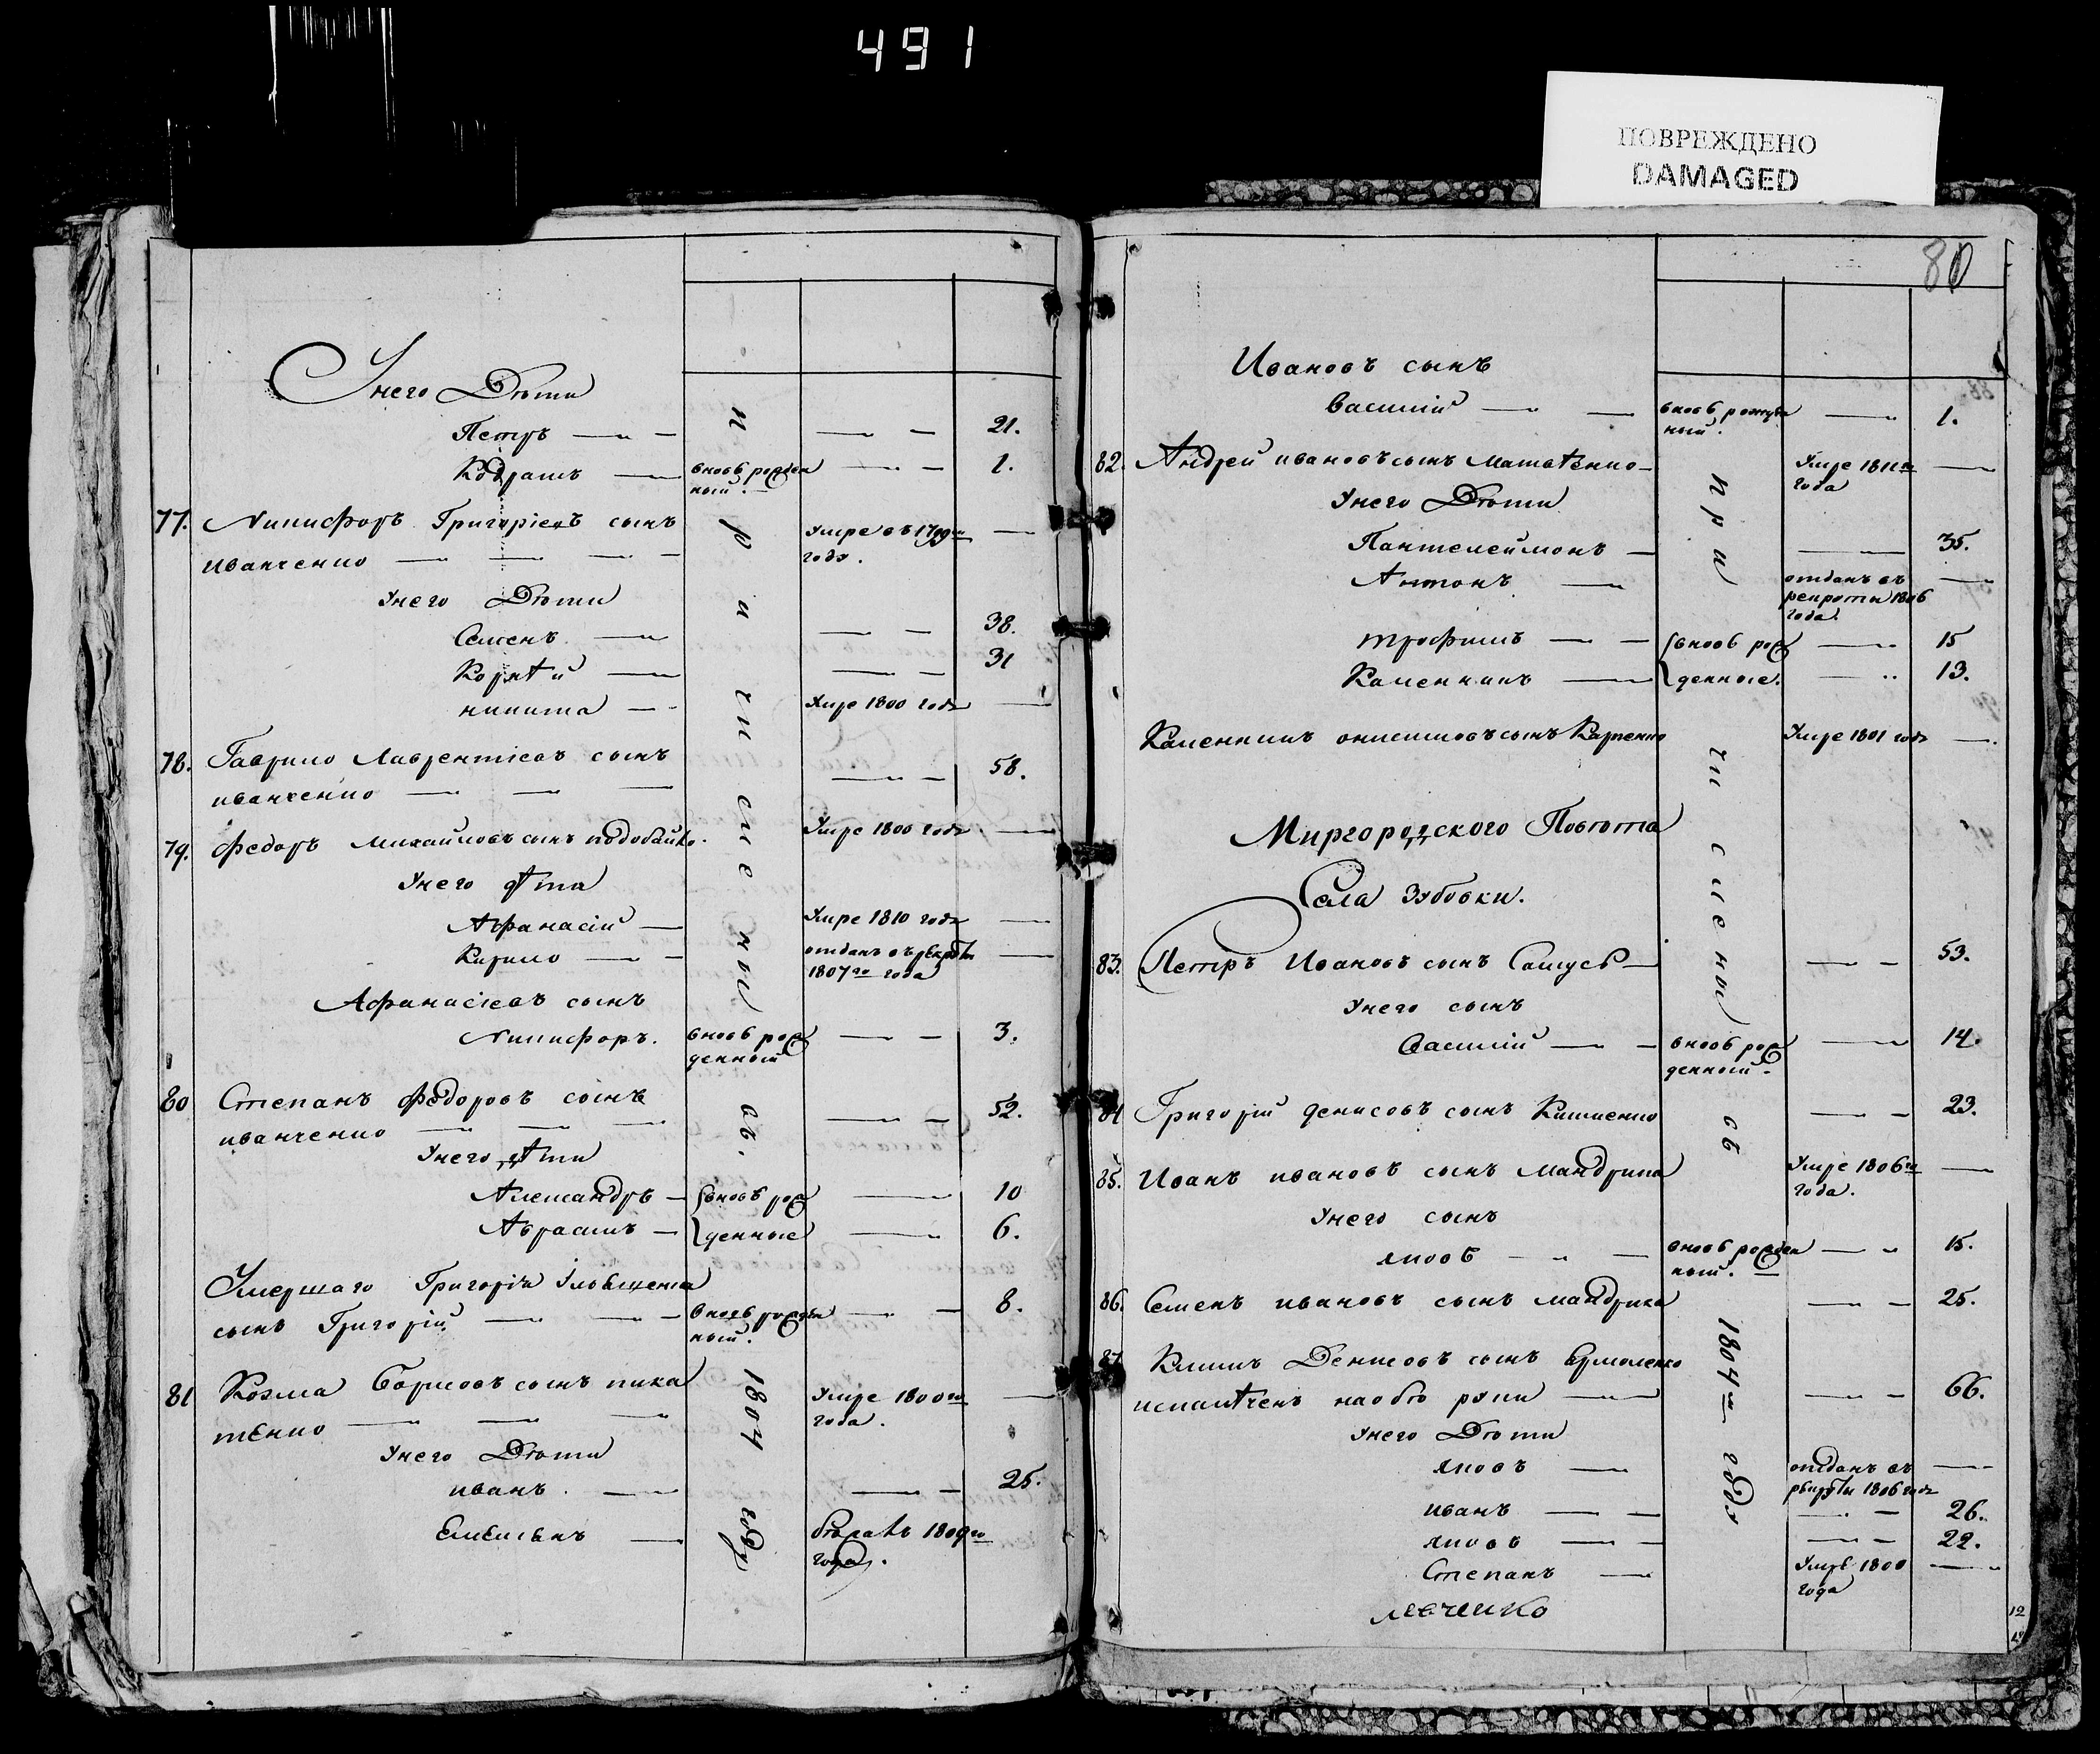 491
ПОВРЕЖДЕНО
DAMAGED
Унего Дѣти
Петръ 21.
Кодратъ вновь рожден 1.
ный.
77. Никифоръ Григоріевъ сынъ Умре въ 1799го
иванченко года.
Унего Дѣти
Семенъ 38.
Корнѣй 31
никита Умре 1800 года
78. Гаврило Лаврентіевъ сынъ 58.
иванченко
79. Федоръ Михайловъ сынъ подобайко. Умре 1800 года
Унего дѣти
Афанасій Умре 1810 года
Кирило отданъ въ рекруты
1807го года
Афанасіевъ сынъ
Никифоръ. вновь рож 3.
денный
80 Степанъ Федоровъ сынъ 52.
иванченко
Унего дѣти
Александръ вновь рож 10
Аврамъ денные 6.
Умершаго Григорія
сынъ Григорій вновь рожден 8.
ный.
81 Козма Борисовъ сынъ Умре 1800го
года.
Унего Дѣти
иванъ. 25.
Емельянъ бѣжалъ 1809го
года.
причисленыи въ. 1804 году
80
Ивановъ сынъ
Василій вновь рожден 1.
ный.
82. Андрей ивановъ сынъ Матвѣенко Умре 1811го
года
Унего Дѣти
Пантелеймонъ 35.
Антонъ отданъ въ
рекруты 1806
года.
трофимъ вновь рож 15
Калениикъ денные. 13.
Каленникъ онисимовъ сынъ Умре 1801 года
Миргородского Повѣта
Села Зубовки.
83. Петръ Ивановъ сынъ Самусь 53.
Унего сынъ
Василій вновь рож 14.
денный.
84 Григорій денисовъ сынъ 23.
85. Иванъ ивановъ сынъ мандрика Умре 1806го
года.
Унего сынъ
яковъ вновь рожден 15.
ный.
86. Семенъ ивановъ сынъ мандрика 25.
87. Климъ Денисовъ сынъ Ермоленко
искалѣченъ наобѣ руки 66.
Унего Дѣти
яковъ отданъ въ
рекруты 1806 года
иванъ 26.
яковъ 22.
Степанъ Умре 1800
года
левченко
причислены въ 1804м годѣ